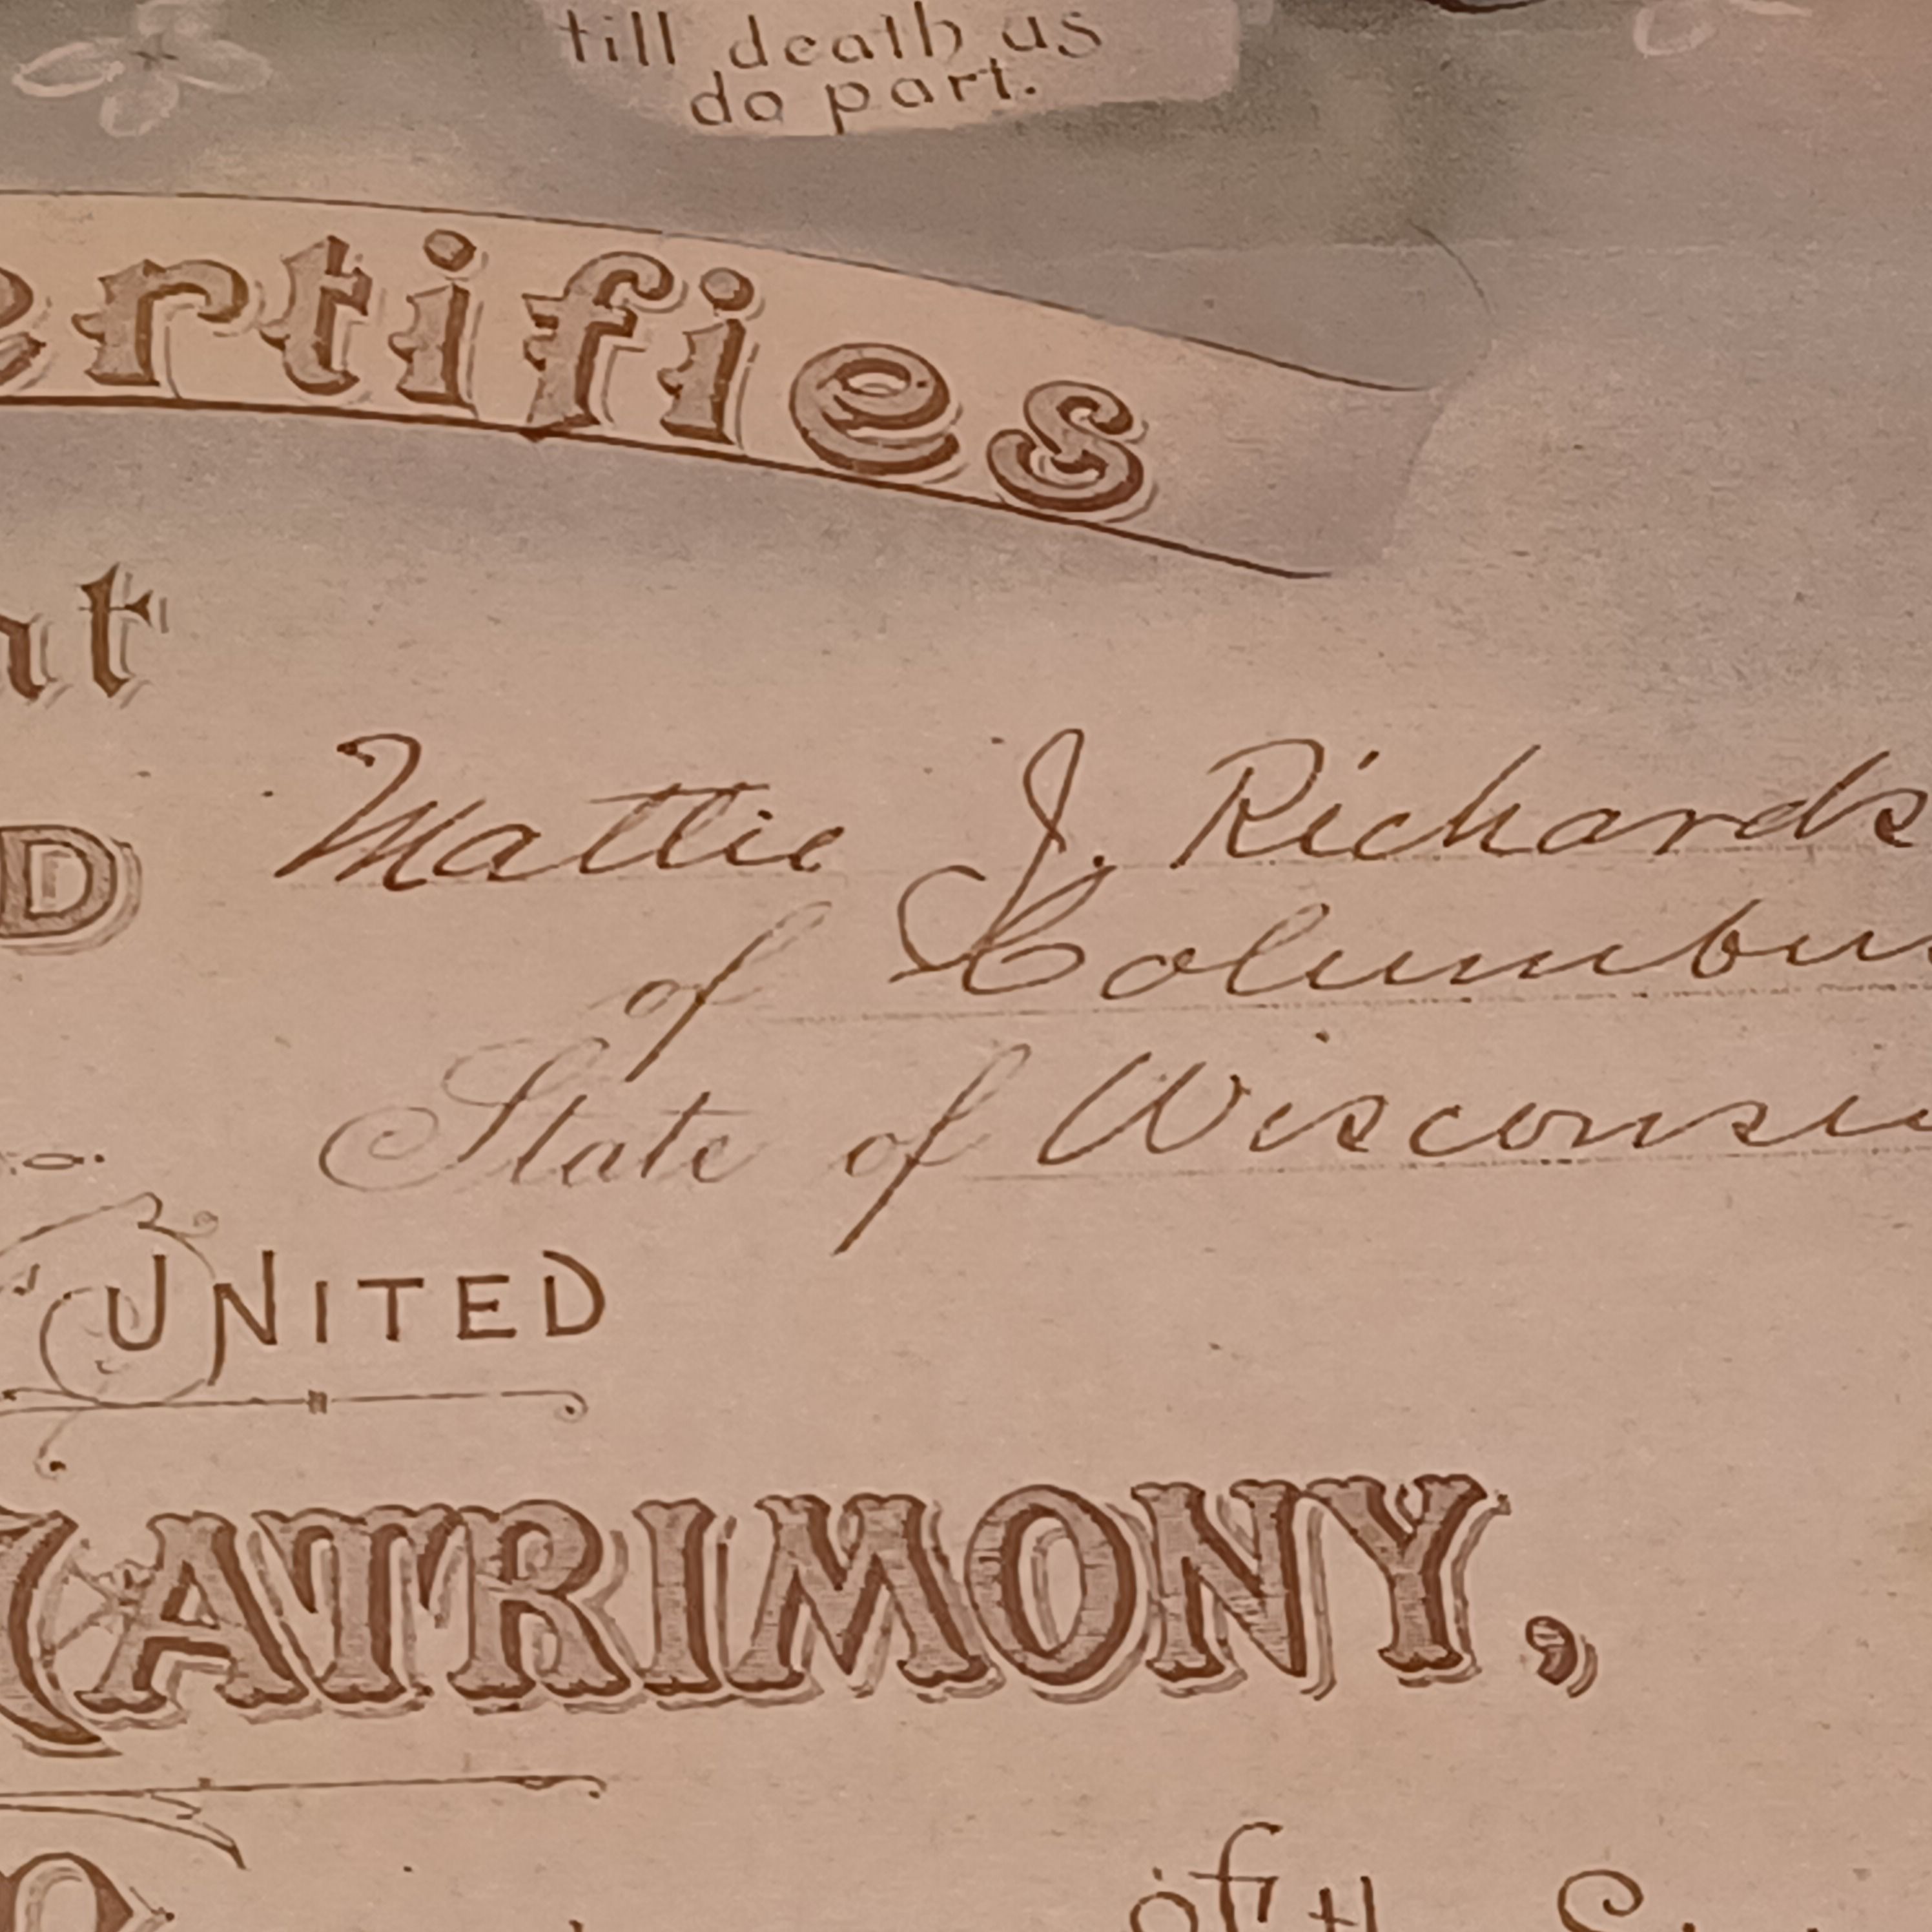 till death us
do part.
ertifies
nt
D Mattie J. Richards
of Columbus
State of Wisconsin
UNITED
MATRIMONY,
of the